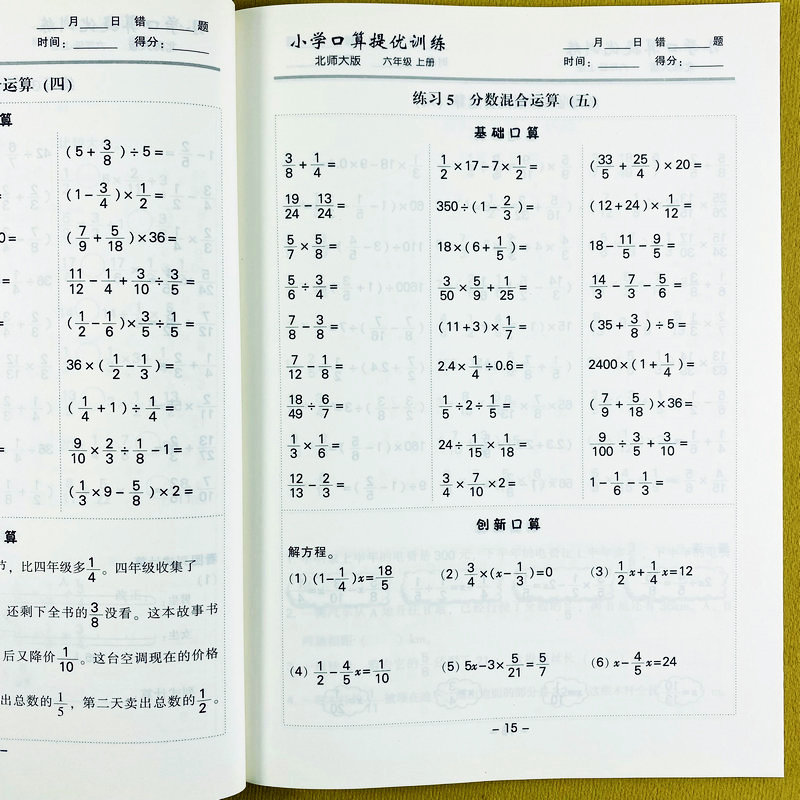 ___月___日 错___题
时间：___ 得分：___
合运算（四）
算
(5+3/8)÷5=
(1-3/4)×1/2=
(7/9+5/18)×36=
0=
11/12-1/4+3/10÷3/5=
=
(1/2-1/6)×3/5÷1/5=
36×(1/2-1/3)=
(1/4+1)÷1/4=
=
9/10×2/3÷1/8-1=
(1/3×9-5/8)×2=
算
节，比四年级多1/4。四年级收集了
还剩下全书的3/8没看。这本故事书
后又降价1/10。这台空调现在的价格
出总数的1/5，第二天卖出总数的1/2。
小学口算提优训练
北师大版 六年级 上册
___月___日 错___题
时间：___ 得分：___
练习5 分数混合运算（五）
基础口算
3/8+1/4= 1/2×17-7×1/2= (33/5+25/4)×20=
19/24-13/24= 350÷(1-2/3)= (12+24)×1/12=
5/7×5/8= 18×(6+1/5)= 18-11/5-9/5=
5/6÷3/4= 3/50×5/9+1/25= 14/3-7/3-5/6=
7/8-3/8= (11+3)×1/7= (35+3/8)÷5=
7/12-1/8= 2.4×1/4÷0.6= 2400×(1+1/4)=
18/49÷6/7= 1/5÷2÷1/5= (7/9+5/18)×36=
1/3×1/6= 24÷1/15×1/18= 9/100÷3/5+3/10=
12/13-2/3= 3/4×7/10×2= 1-1/6-1/3=
创新口算
解方程。
(1) (1-1/4)x=18/5 (2) 3/4×(x-1/3)=0 (3) 1/2x+1/4x=12
(4) 1/2-4/5x=1/10 (5) 5x-3×5/21=5/7 (6) x-4/5x=24
- 15 -